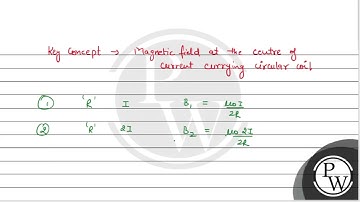 Key Concept → Magnetic field at the centre of
current currying circular coil
① 'R' I B₁ = μ₀I/2R
② 'R' 2I B₂ = μ₀2I/2R
PW